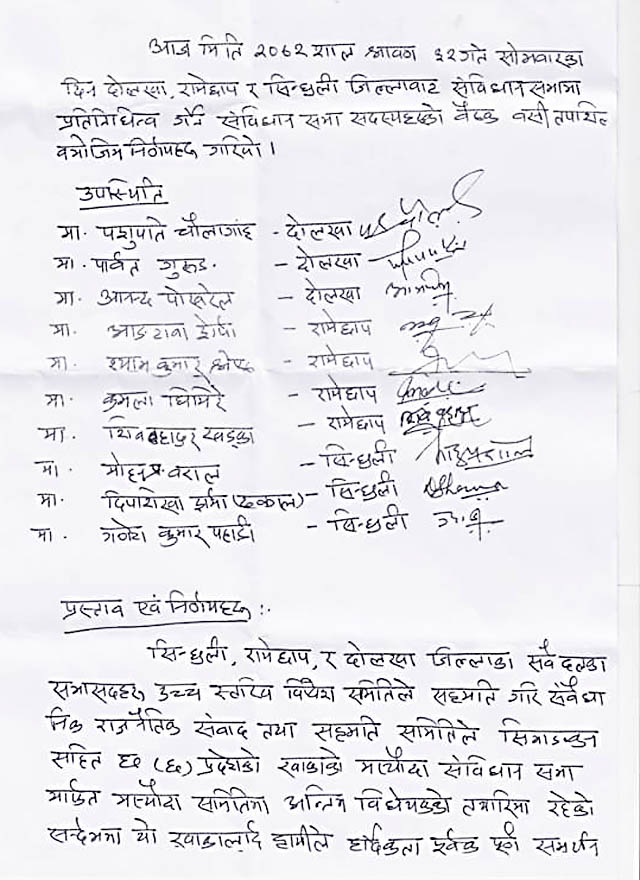 आज मिति २०७२ साल श्रावण ३२ गते सोमवारका
दिन दोलखा, रामेछाप र सिन्धुली जिल्लावाट संविधान सभामा
प्रतिनिधित्व गर्ने संविधान सभा सदस्यहरुको वैठक वसी तपशिल
वमोजिम निर्णयहरु गरियो।
उपस्थिति
मा. पशुपति चौलागाई - दोलखा
मा. पार्वत गुरुङ - दोलखा
मा. आनन्द पोखरेल - दोलखा
मा. आङटावा शेर्पा - रामेछाप
मा. श्याम कुमार श्रेष्ठ - रामेछाप
मा. कमला घिमिरे - रामेछाप
मा. शिव बहादुर खड्का - रामेछाप
मा. मोहन प्र. वराल - सिन्धुली
मा. दिपशिखा शर्मा (ढकाल) - सिन्धुली
मा. गणेश कुमार पहाडी - सिन्धुली
प्रस्ताव एवं निर्णयहरु :-
सिन्धुली, रामेछाप, र दोलखा जिल्लाका सवै दलका
सभासदहरु उच्च स्तरिय विशेष समितिले सहमति गरि संवैधा
निक राजनैतिक संवाद तथा सहमति समितिले सिमाङ्कन
सहित छ (६) प्रदेशको खाकाको मस्यौदा संविधान सभा
मार्फत मस्यौदा समितिमा अन्तिम विधेयकको तयारिमा रहेको
सन्दर्भमा यो खाकालाई हामीले हार्दिकता पूर्वक पूर्ण समर्थन